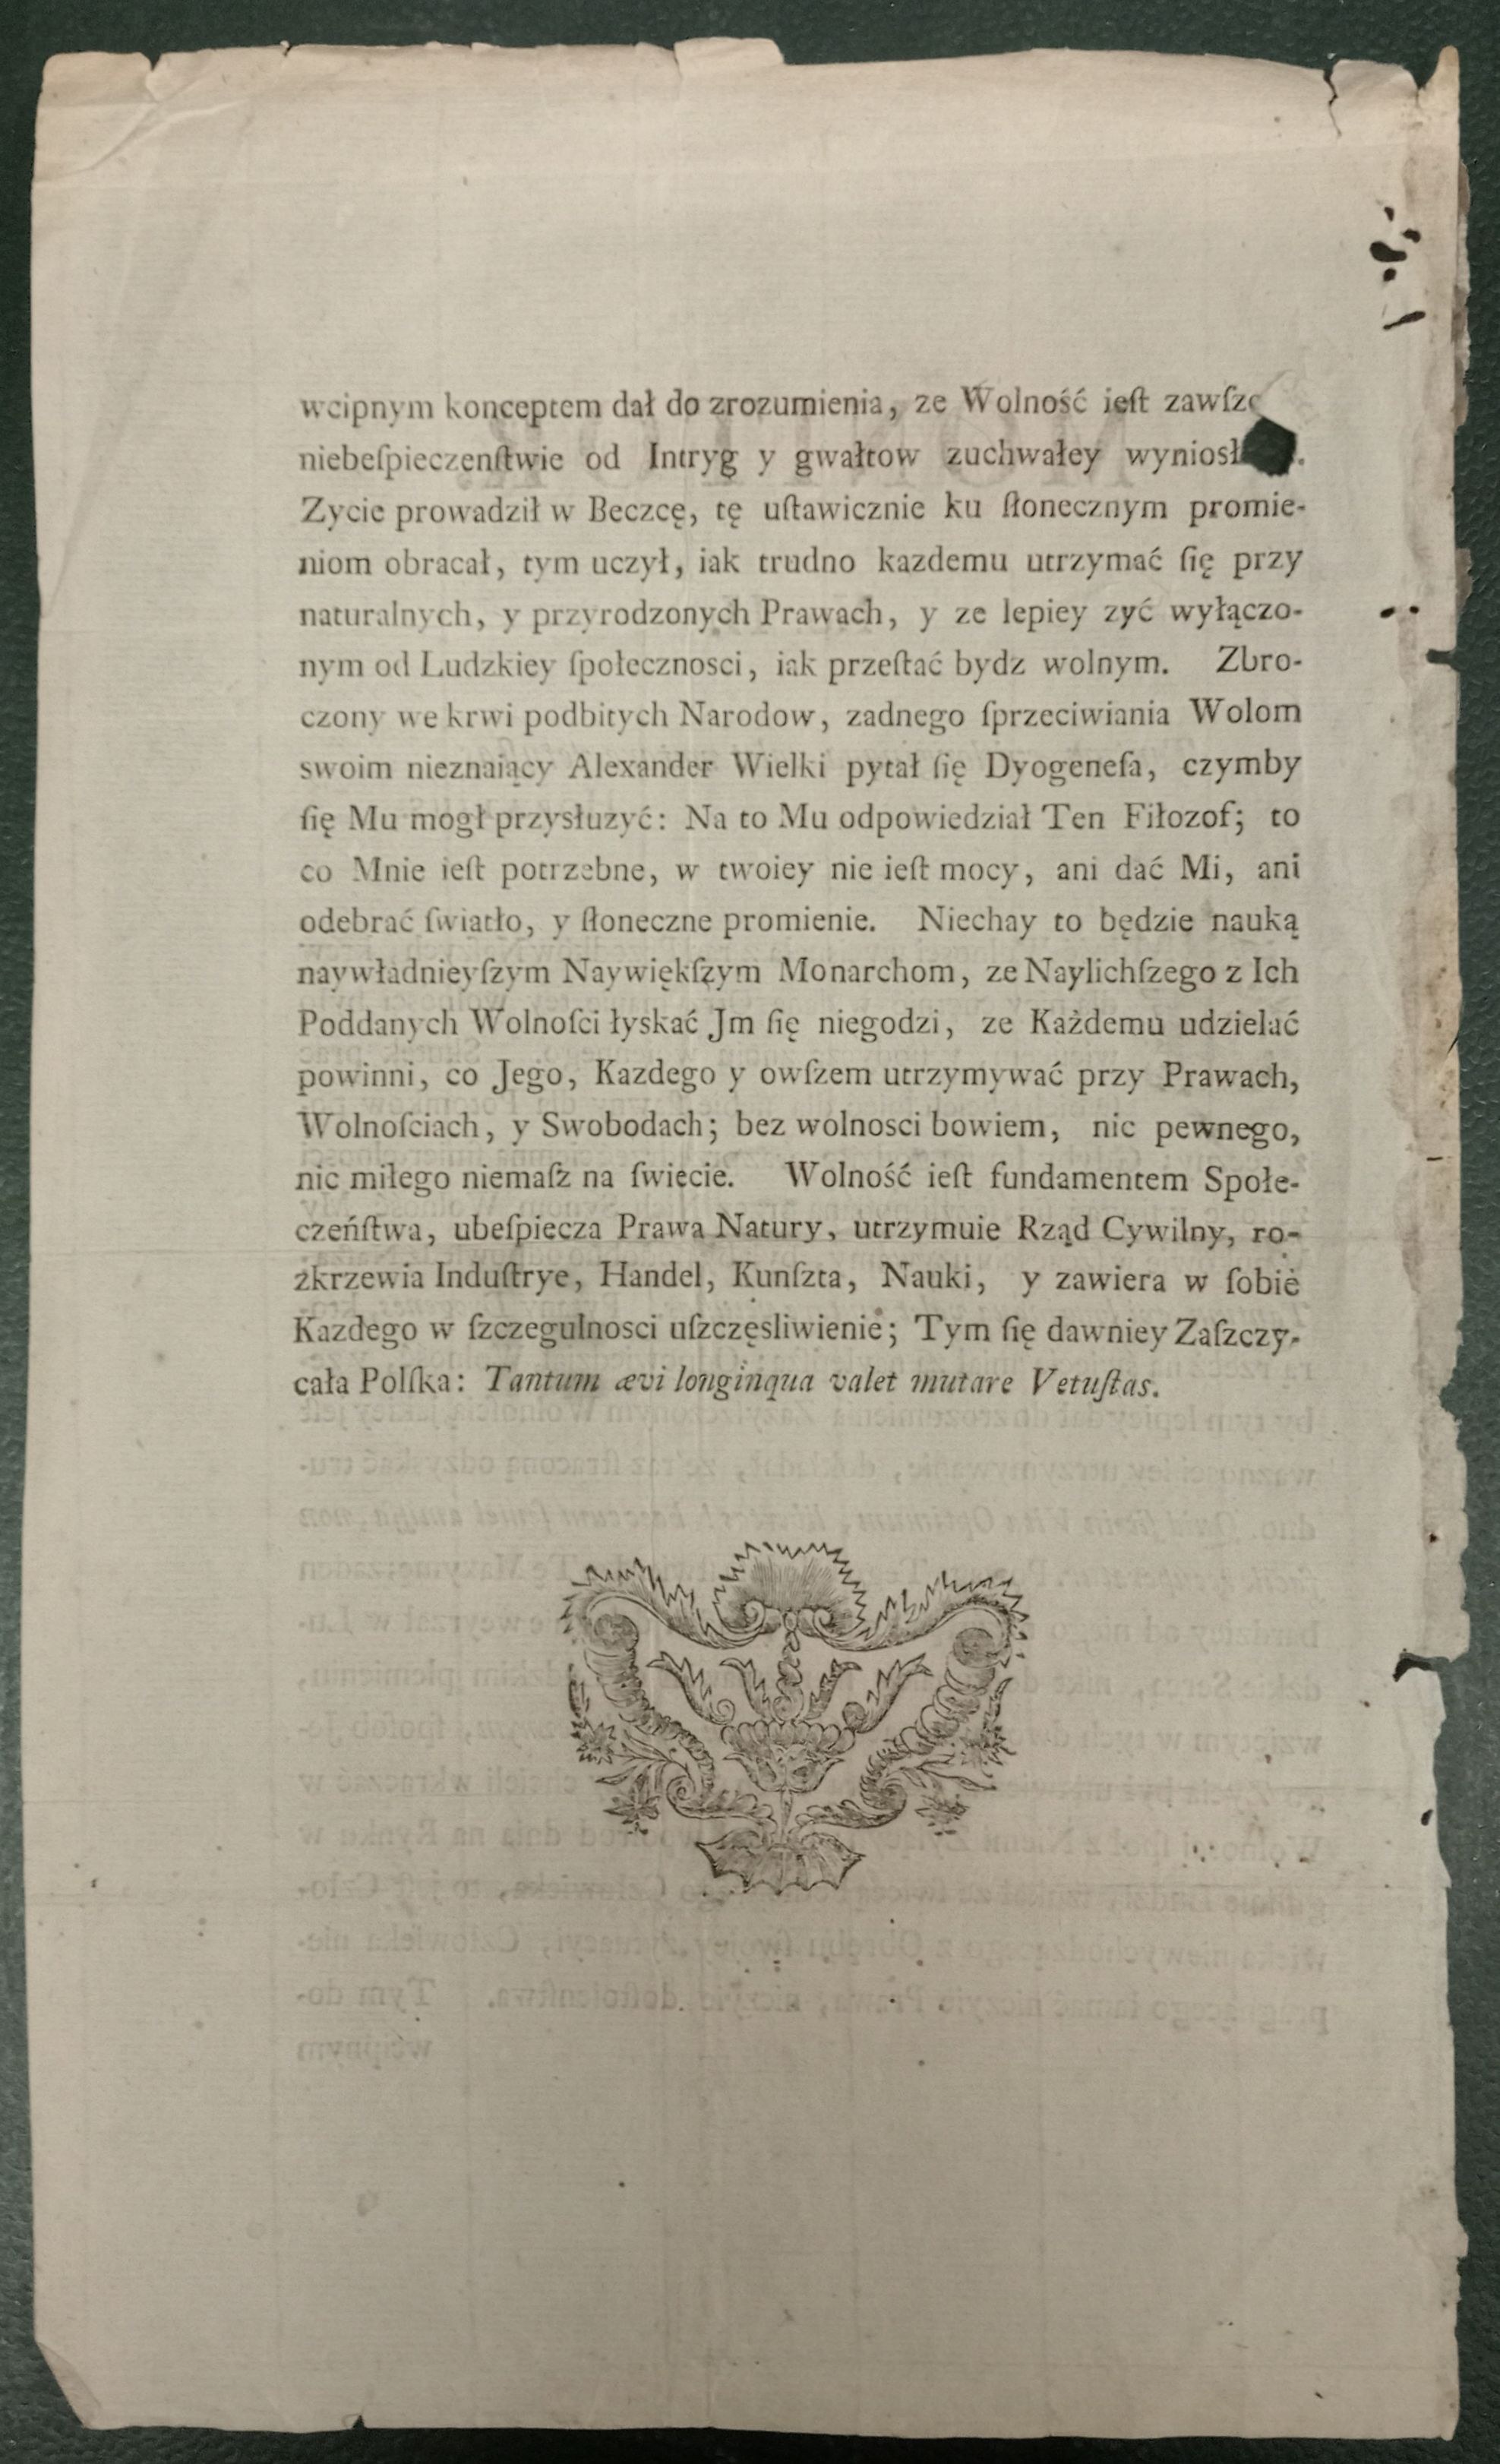 wcipnym konceptem dał do zrozumienia, ze Wolność ieſt zawſze
niebeſpieczenſtwie od Intryg y gwałtow zuchwałey
Zycie prowadził w Beczcę, tę uſtawicznie ku ſłonecznym promie-
niom obracał, tym uczył, iak trudno kazdemu utrzymać ſię przy
naturalnych, y przyrodzonych Prawach, y ze lepiey zyć wyłączo-
nym od Ludzkiey ſpołecznosci, iak przeſtać bydz wolnym. Zbro-
czony we krwi podbitych Narodow, zadnego ſprzeciwiania Wolom
swoim nieznaiący Alexander Wielki pytał ſię Dyogeneſa, czymby
ſię Mu mogł przysłuzyć: Na to Mu odpowiedział Ten Fiłozof; to
co Mnie ieſt potrzebne, w twoiey nie ieſt mocy, ani dać Mi, ani
odebrać ſwiatło, y ſłoneczne promienie. Niechay to będzie nauką
naywładnieyſzym Naywiękſzym Monarchom, ze Naylichſzego z Ich
Poddanych Wolnoſci łyskać Jm ſię niegodzi, ze Każdemu udzielać
powinni, co Jego, Kazdego y owſzem utrzymywać przy Prawach,
Wolnoſciach, y Swobodach; bez wolnosci bowiem, nic pewnego,
nic miłego niemaſz na ſwiecie. Wolność ieſt fundamentem Społe-
czeńſtwa, ubeſpiecza Prawa Natury, utrzymuie Rząd Cywilny, ro-
zkrzewia Induſtrye, Handel, Kunſzta, Nauki, y zawiera w ſobie
Kazdego w ſzczegulnosci uſzczęsliwienie; Tym ſię dawniey Zaſzczy-
cała Polſka: Tantum ævi longinqua valet mutare Vetuſtas.